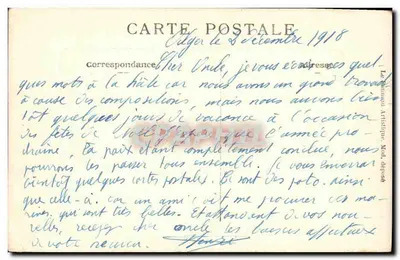 CARTE POSTALE
Alger le 2 décembre 1918
Correspondance
Adresse
Cher Oncle, je vous écris ces quel-
ques mots à la hâte car nous avons un grand travail
à cause des compositions, mais nous aurons très
tôt quelques jours de vacance à l'occasion
des fêtes de que l'année pro-
chaine, la paix étant complètement conclue, nous
pourrons les passer tous ensemble. Je vous enverrai
bientôt quelques cartes postales. Ils ont des photo. ainsi
que celle-ci. car un ami doit me procurer ces ma-
rines, qui sont très belles. En attendant de vos nou-
velles, recevez cher oncle les baisers affectueux
de votre neveu.
Artistique, Mod. déposé